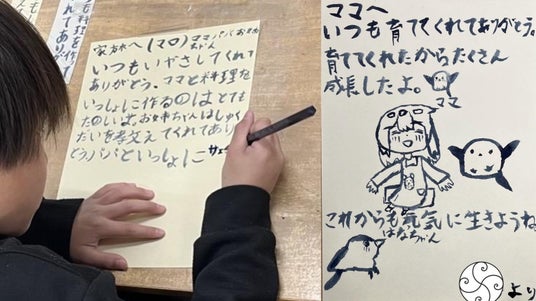 も料理を作って
ありが
家族へ(マロ)ママパパお姉ちゃん
いつもいやさしてくれて
ありがとう。ママと料理を
いっしょに作るのはとても
たのしいよ。お姉ちゃんはしゅく
だいを教えてくれてあり
とうパパといっしょに
ママへ
いつも育ててくれてありがとう。
育ててくれたからたくさん
成長したよ。
ママ
これからも元気に生きようね
はなちゃん
より